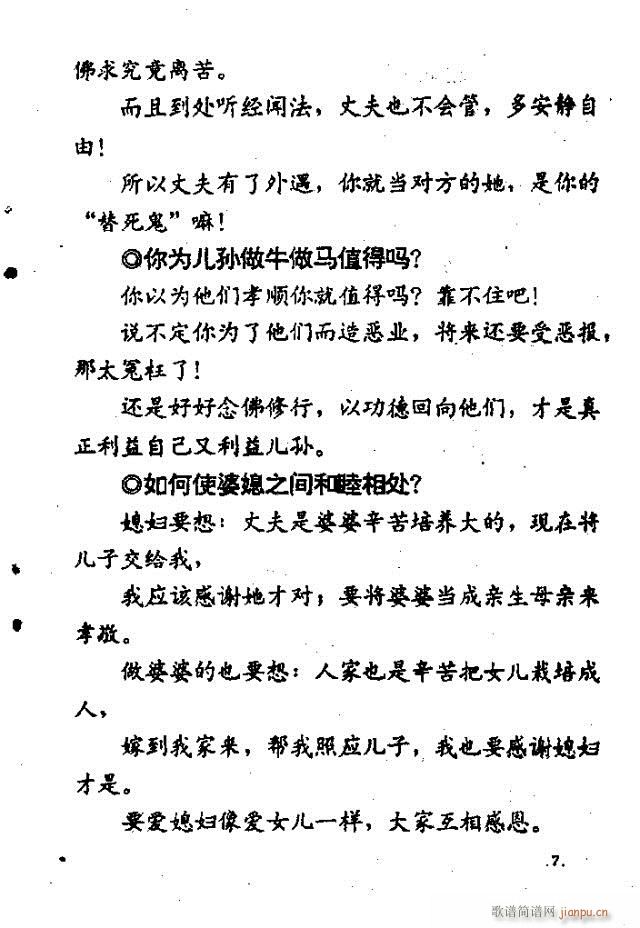 佛求究竟离苦。
而且到处听经闻法，丈夫也不会管，多安静自
由！
所以丈夫有了外遇，你就当对方的她，是你的
“替死鬼”嘛！
◎你为儿孙做牛做马值得吗？
你以为他们孝顺你就值得吗？靠不住吧！
说不定你为了他们而造恶业，将来还要受恶报，
那太冤枉了！
还是好好念佛修行，以功德回向他们，才是真
正利益自己又利益儿孙。
◎如何使婆媳之间和睦相处？
媳妇要想：丈夫是婆婆辛苦培养大的，现在将
儿子交给我，
我应该感谢她才对；要将婆婆当成亲生母亲来
孝敬。
做婆婆的也要想：人家也是辛苦把女儿栽培成
人，
嫁到我家来，帮我照应儿子，我也要感谢媳妇
才是。
要爱媳妇像爱女儿一样，大家互相感恩。
.7.
歌谱简谱网 jianpu.cn